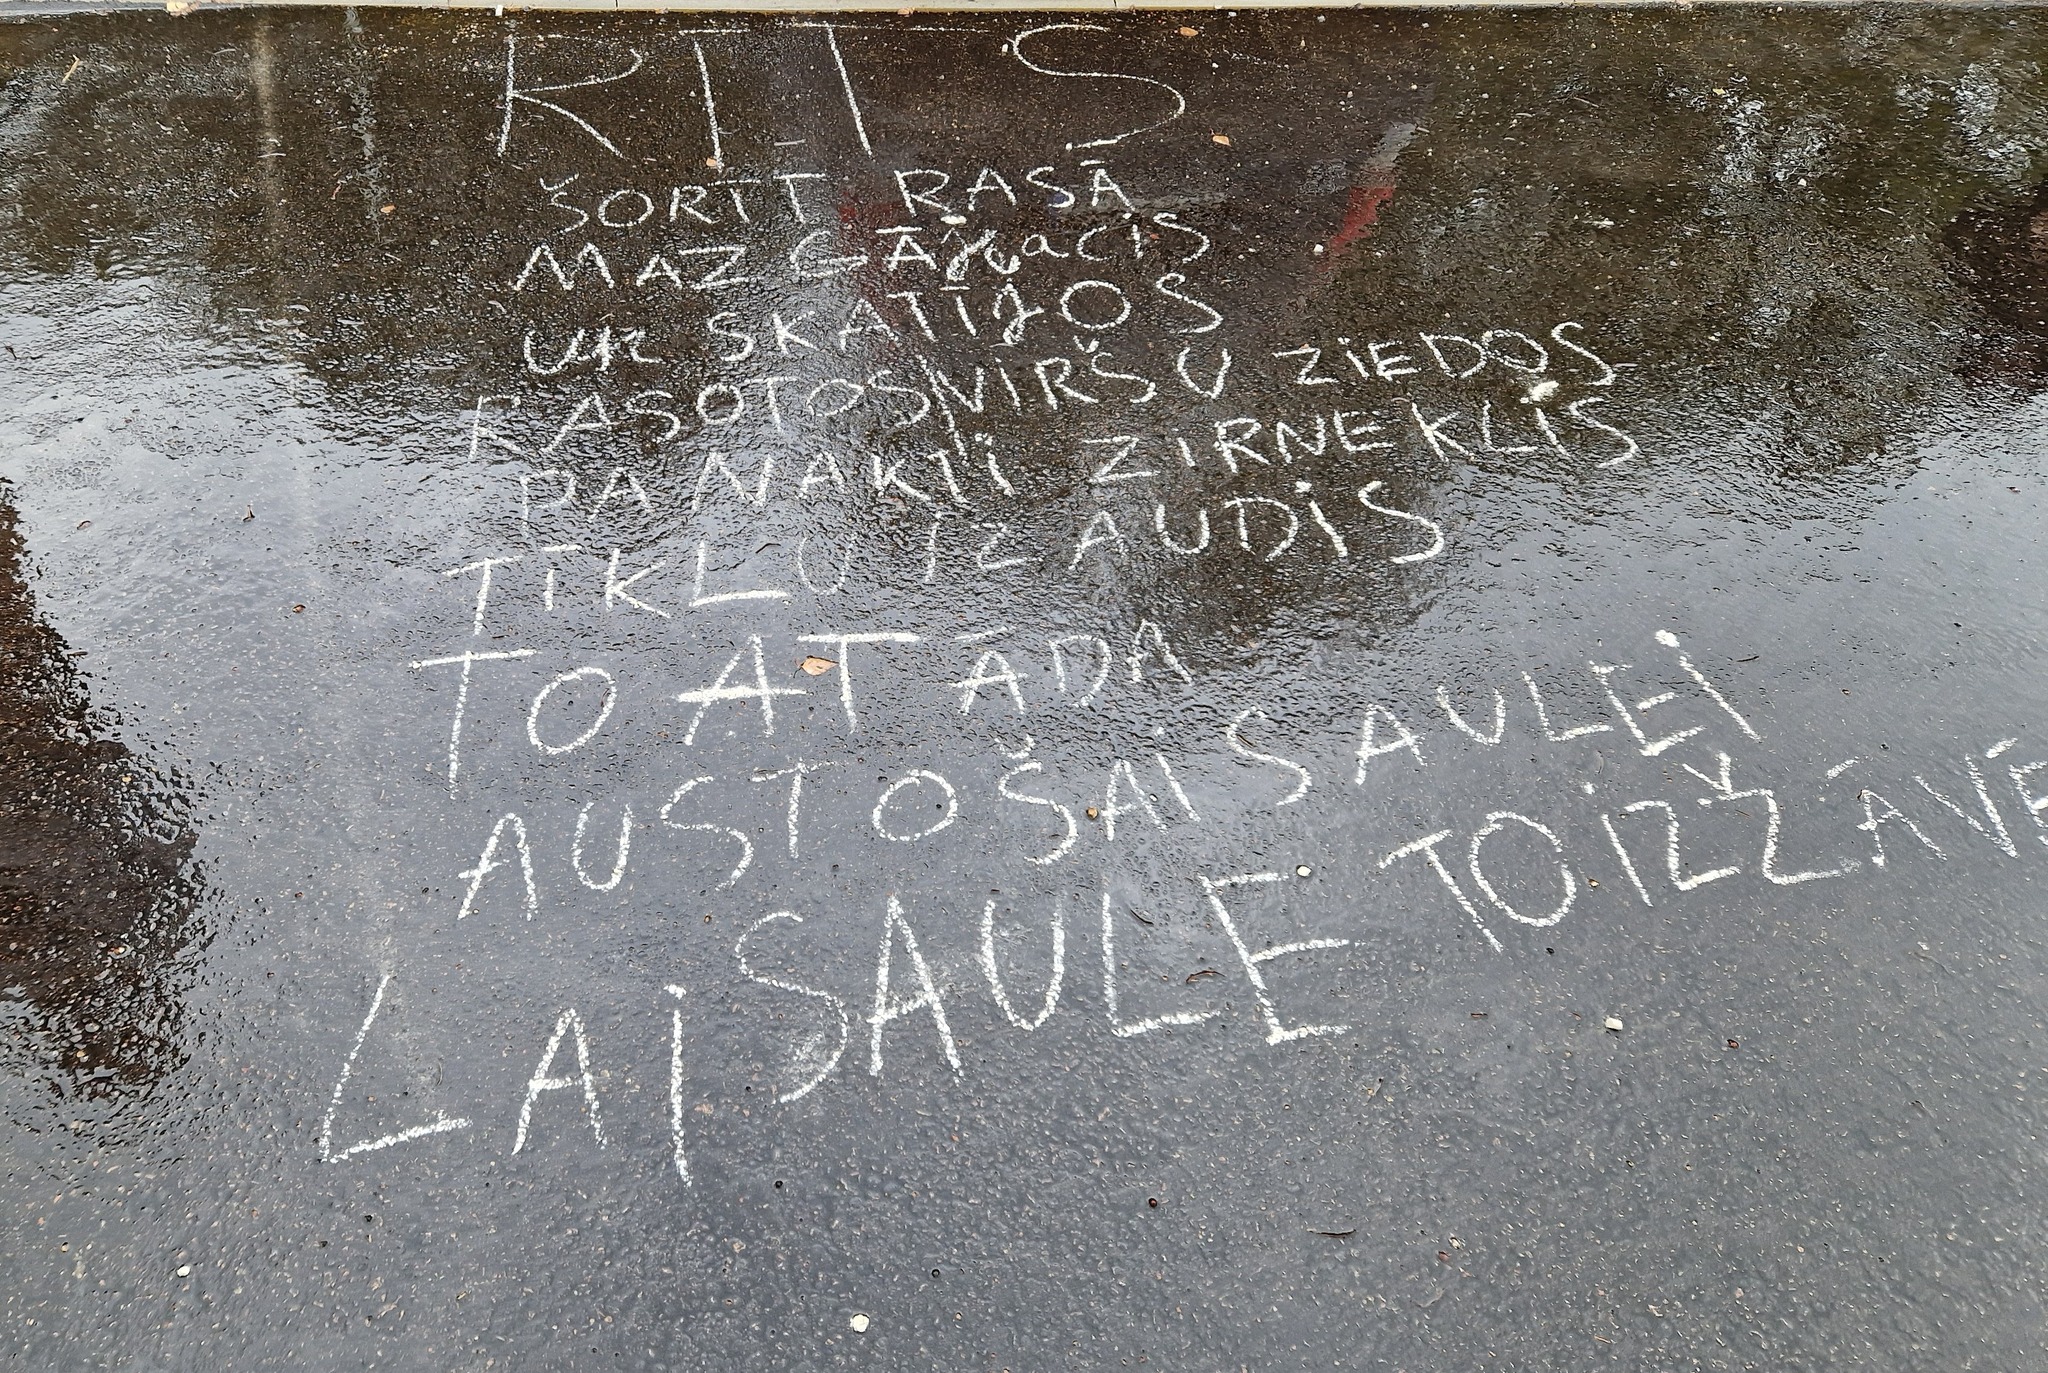 RĪTS
ŠORĪT RASĀ
MAZGĀJU ACIS
UN SKATĪJOS
RASOTOS VIRSŪ ZIEDOS
PA NAKTI ZIRNEKLIS
TĪKLU IZAUDIS
TO ATĀDA
AUSTOŠAI SAULEI
LAI SAULE TO IZŽĀVĒ